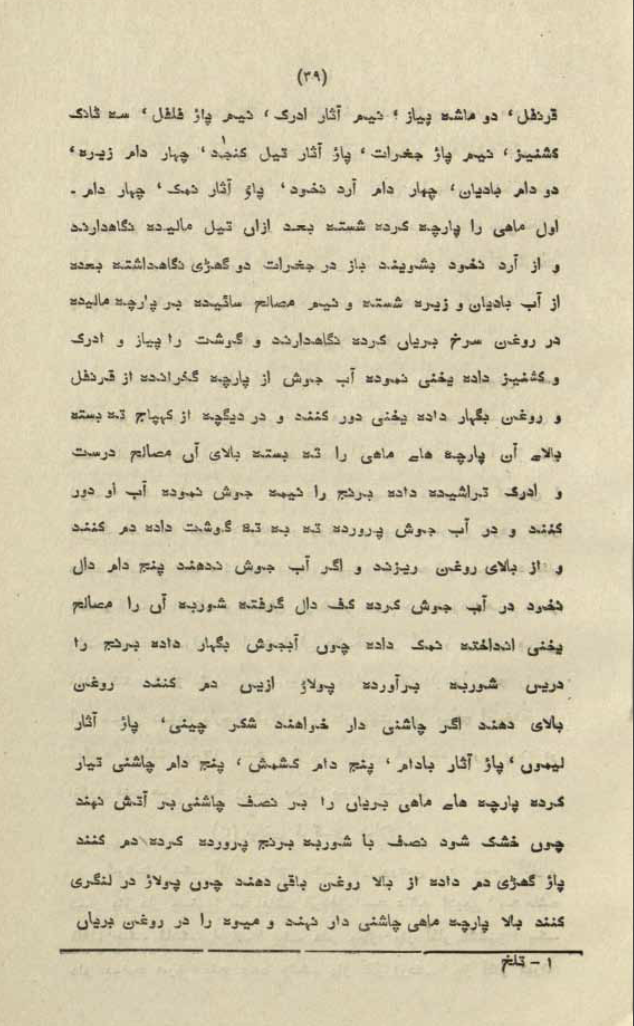 (۳۹)
قرنفل، دو ماشه پیاز، نیم آثار ادرک، نیم پاؤ فلفل، سه ٹانک
کشنیز، نیم پاؤ جغرات، پاؤ آثار تیل کنجد۱، چهار دام زیره،
دو دام بادیان، چهار دام آرد نخود، پاؤ آثار نمک، چهار دام ۔
اول ماهی را پارچه کرده شسته بعد ازاں تیل مالیده نگاهدارند
و از آرد نخود بشویند باز در جغرات دو گهڑی نگاهداشته بعده
از آب بادیان و زیره شسته و نیم مصالح سائیده بر پارچه مالیده
در روغن سرخ بریاں کرده نگاهدارند و گوشت را پیاز و ادرک
و کشنیز داده یخنی نموده آب جوش از پارچه گذرانده از قرنفل
و روغن بگهار داده یخنی دور کنند و در دیگچه از کهپاچ ته بسته
بالاے آن پارچه هاے ماهی را ته بسته بالای آں مصالح درست
و ادرک تراشیده داده برنج را نیمه جوش نموده آب او دور
کنند و در آب جوش پرورده ته به ته گوشت داده دم کنند
و از بالای روغن ریزند و اگر آب جوش ندهند پنج دام دال
نخود در آب جوش کرده کف دال گرفته شوربه آں را مصالح
یخنی انداخته نمک داده چوں آبجوش بگهار داده برنج را
دریں شوربه برآورده پولاؤ ازیں دم کنند روغن
بالای دهند اگر چاشنی دار خواهند شکر چینی، پاؤ آثار
لیموں، پاؤ آثار بادام، پنج دام کشمش، پنج دام چاشنی تیار
کرده پارچه هاے ماهی بریاں را بر نصف چاشنی بر آتش نهند
چوں خشک شود نصف با شوربه برنج پرورده کرده دم کنند
پاؤ گهڑی دم داده از بالا روغن باقی دهند چوں پولاؤ در لنگری
کنند بالا پارچه ماهی چاشنی دار نهند و میوه را در روغن بریاں
۱ - تلخ